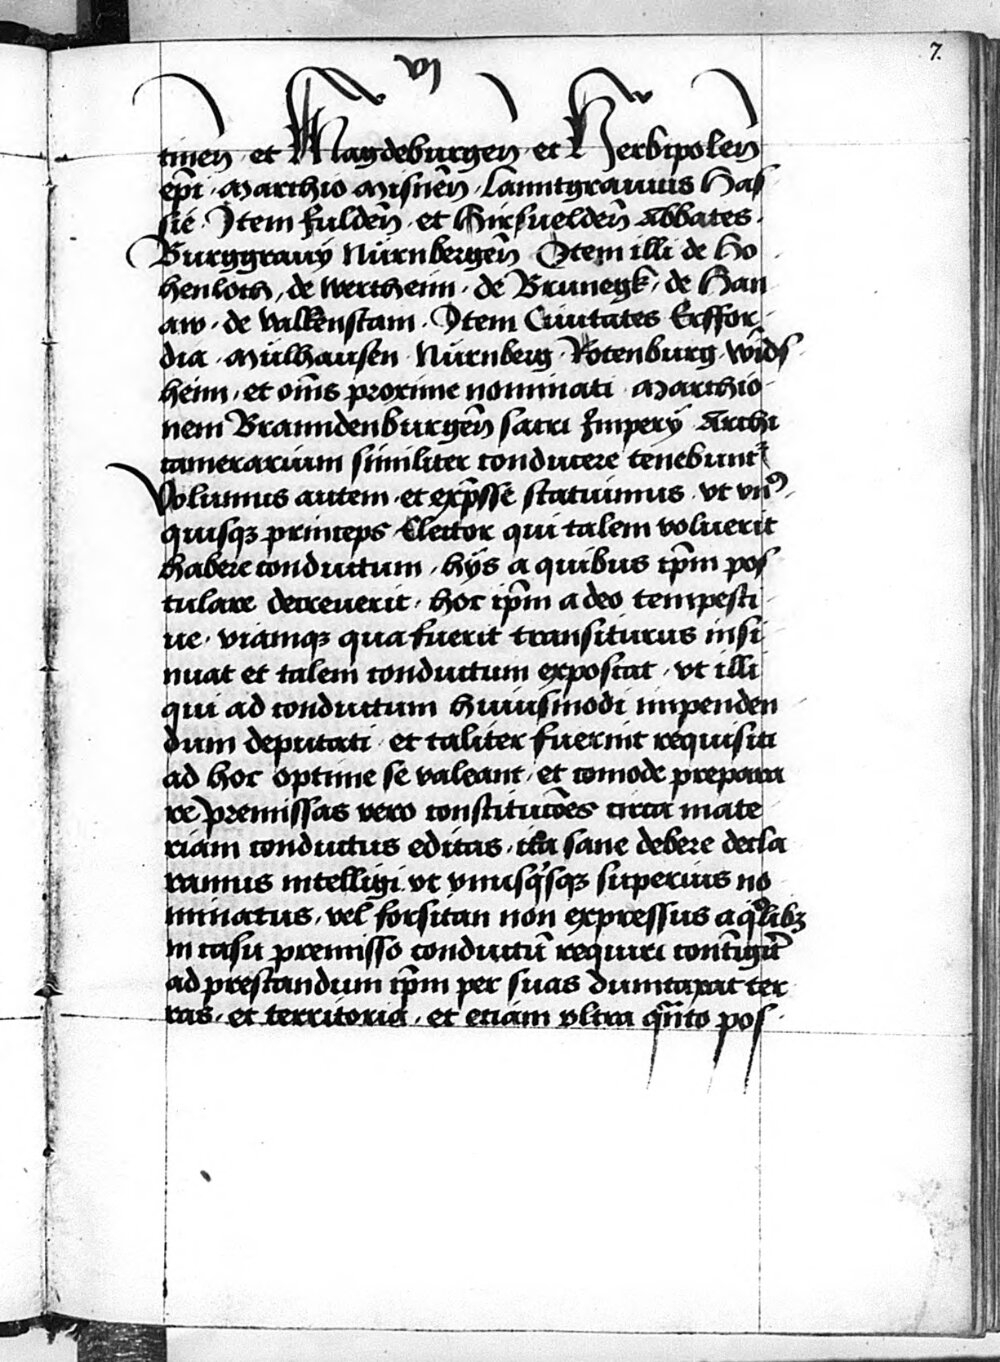 7.
vi
tinen̄ et Magdeburgen̄ et Herbipolen̄
ep̄i · Marchio Misnen̄ · lanntgrauius Has
sie · Item fulden̄ et Hirsuelden̄ Abbates ·
Burggrauij Nürnbergen̄ Item illi de Ho
henloch, de wertheim · de Brunegk · de Han
aw · de valkenstain · Item Ciuitates Erffor
dia · Mülhausen · Nürnberg · Rotenburg · winds
heim, et om̄s proxime nominati Marchio
nem Branndenburgen̄ sacri Imperÿ Archi
camerarium similiter conducere tenebuntr
Volumus autem · et exp̄sse statuimus · vt vnꝰ
quisqꝫ princeps Elector qui talem voluerit
habere conductum, hÿs a quibus ip̄m pos
tulare decreuerit, hoc ip̄m a deo tempesti
ue, viamqꝫ qua fuerit transiturus insi
nuat et talem conductum exposcat, vt illi
qui ad conductum huiusmodi inpenden
dum deputati et taliter fuerint requisiti
ad hoc optime se valeant, et comode prepara
re premissas vero constitucōes circa mate
riam conductus editas, ita sane debere decla
ramus intelligi vt vnusq'sqꝫ superius no
minatus, vel forsitan non expressus a qͦlibꝫ
in casu premisso conductū requiri contīgit̄
ad prestandum ip̄m per suas dumtaxat ter
ras, et territoria, et etiam vltra qn̄to pos